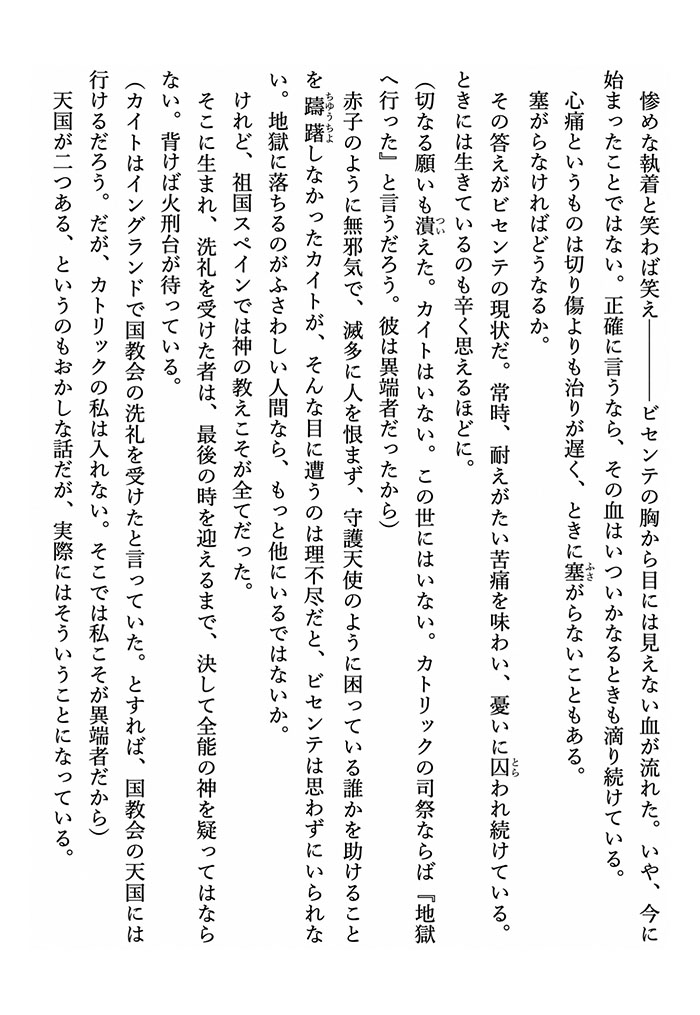 惨めな執着と笑わば笑え――――ビセンテの胸から目には見えない血が流れた。いや、今に
始まったことではない。正確に言うなら、その血はいついかなるときも滴り続けている。
心痛というものは切り傷よりも治りが遅く、ときに塞がらないこともある。
塞がらなければどうなるか。
その答えがビセンテの現状だ。常時、耐えがたい苦痛を味わい、憂いに囚われ続けている。
ときには生きているのも辛く思えるほどに。
(切なる願いも潰えた。カイトはいない。この世にはいない。カトリックの司祭ならば『地獄
へ行った』と言うだろう。彼は異端者だったから)
赤子のように無邪気で、滅多に人を恨まず、守護天使のように困っている誰かを助けること
を躊躇しなかったカイトが、そんな目に遭うのは理不尽だと、ビセンテは思わずにいられな
い。地獄に落ちるのがふさわしい人間なら、もっと他にいるではないか。
けれど、祖国スペインでは神の教えこそが全てだった。
そこに生まれ、洗礼を受けた者は、最後の時を迎えるまで、決して全能の神を疑ってはなら
ない。背けば火刑台が待っている。
(カイトはイングランドで国教会の洗礼を受けたと言っていた。とすれば、国教会の天国には
行けるだろう。だが、カトリックの私は入れない。そこでは私こそが異端者だから)
天国が二つある、というのもおかしな話だが、実際にはそういうことになっている。